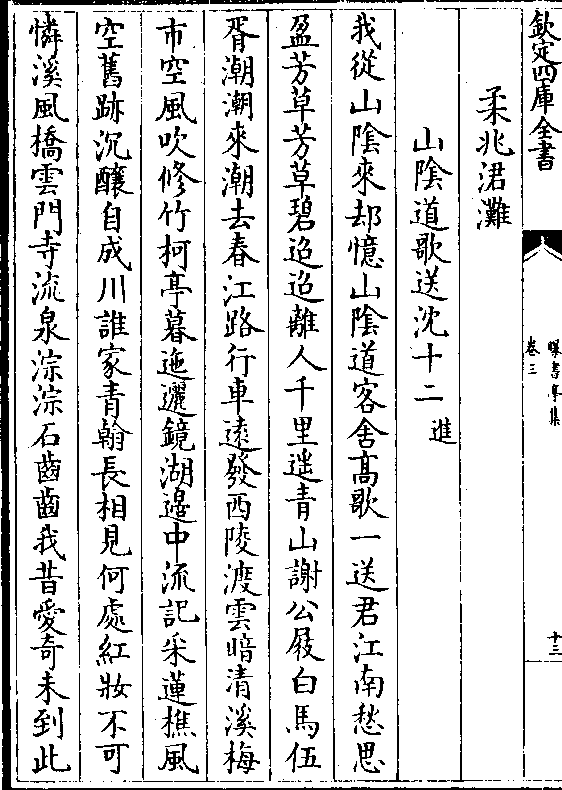 欽定四庫全書
曝書亭集
卷三
十三
柔兆涒灘
山陰道歌送沈十二 進
我從山陰來却憶山陰道客舍高歌一送君江南愁思
盈芳草芳草碧迢迢離人千里遥青山謝公屐白馬伍
胥潮潮來潮去春江路行車遠發西陵渡雲暗清溪梅
市空風吹修竹柯亭暮迤邐鏡湖邉中流記采蓮樵風
空舊跡沉釀自成川誰家青翰長相見何處紅妝不可
憐溪風橋雲門寺流泉淙淙石齒齒我昔愛奇未到此